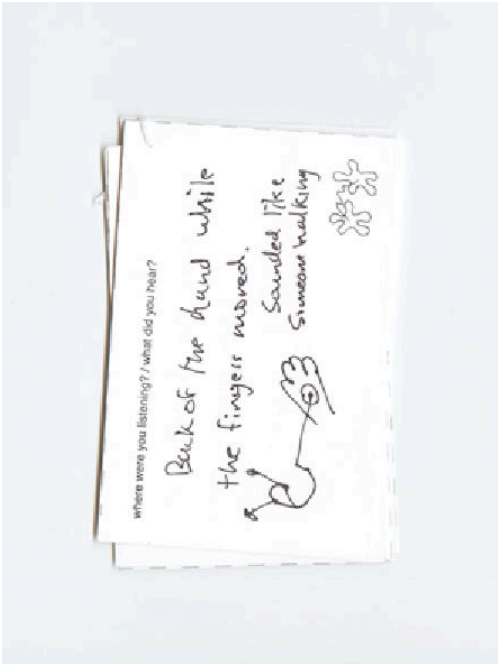 where were you listening? / what did you hear?
Back of the hand while
the fingers moved.
Sounded like
Someone walking